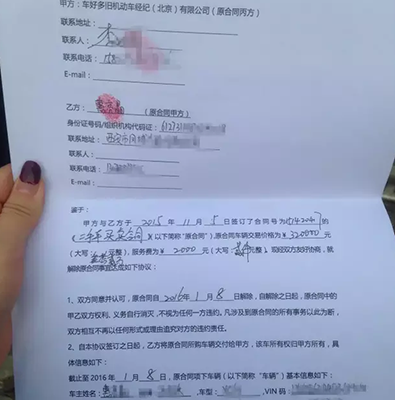 甲方：车好多旧机动车经纪（北京）有限公司（原合同丙方）
联系地址：
联系人：
联系电话：
E-mail：
乙方：（原合同甲方）
身份证号码/组织机构代码证：
联系地址：
联系人：
联系电话：
E-mail：
鉴于：
甲方与乙方于 2015 年 11 月 5 日签订了合同号为
的《二手车买卖合同》（以下简称“原合同”），原合同车辆交易价格为￥320000 元
（大写：元整），服务费为￥2000 元（大写：元整），现经双方友好协商，就
解除原合同事宜达成如下协议：
1、双方同意并认可，原合同自 2016 年 1 月 8 日解除，自解除之日起，原合同中的
甲乙双方权利、义务自行消灭，不视为任何一方违约。凡涉及到原合同的所有事务以此为断，
双方相互不再以任何形式或理由追究对方的违约责任。
2、自本协议签订之日起，乙方将原合同所购车辆交付给甲方，该车所有权归甲方所有，具
体信息如下：
截止至 2016 年 1 月 8 日，原合同项下车辆（以下简称“车辆”）基本信息如下：
车主姓名 ，车型： ，VIN 码